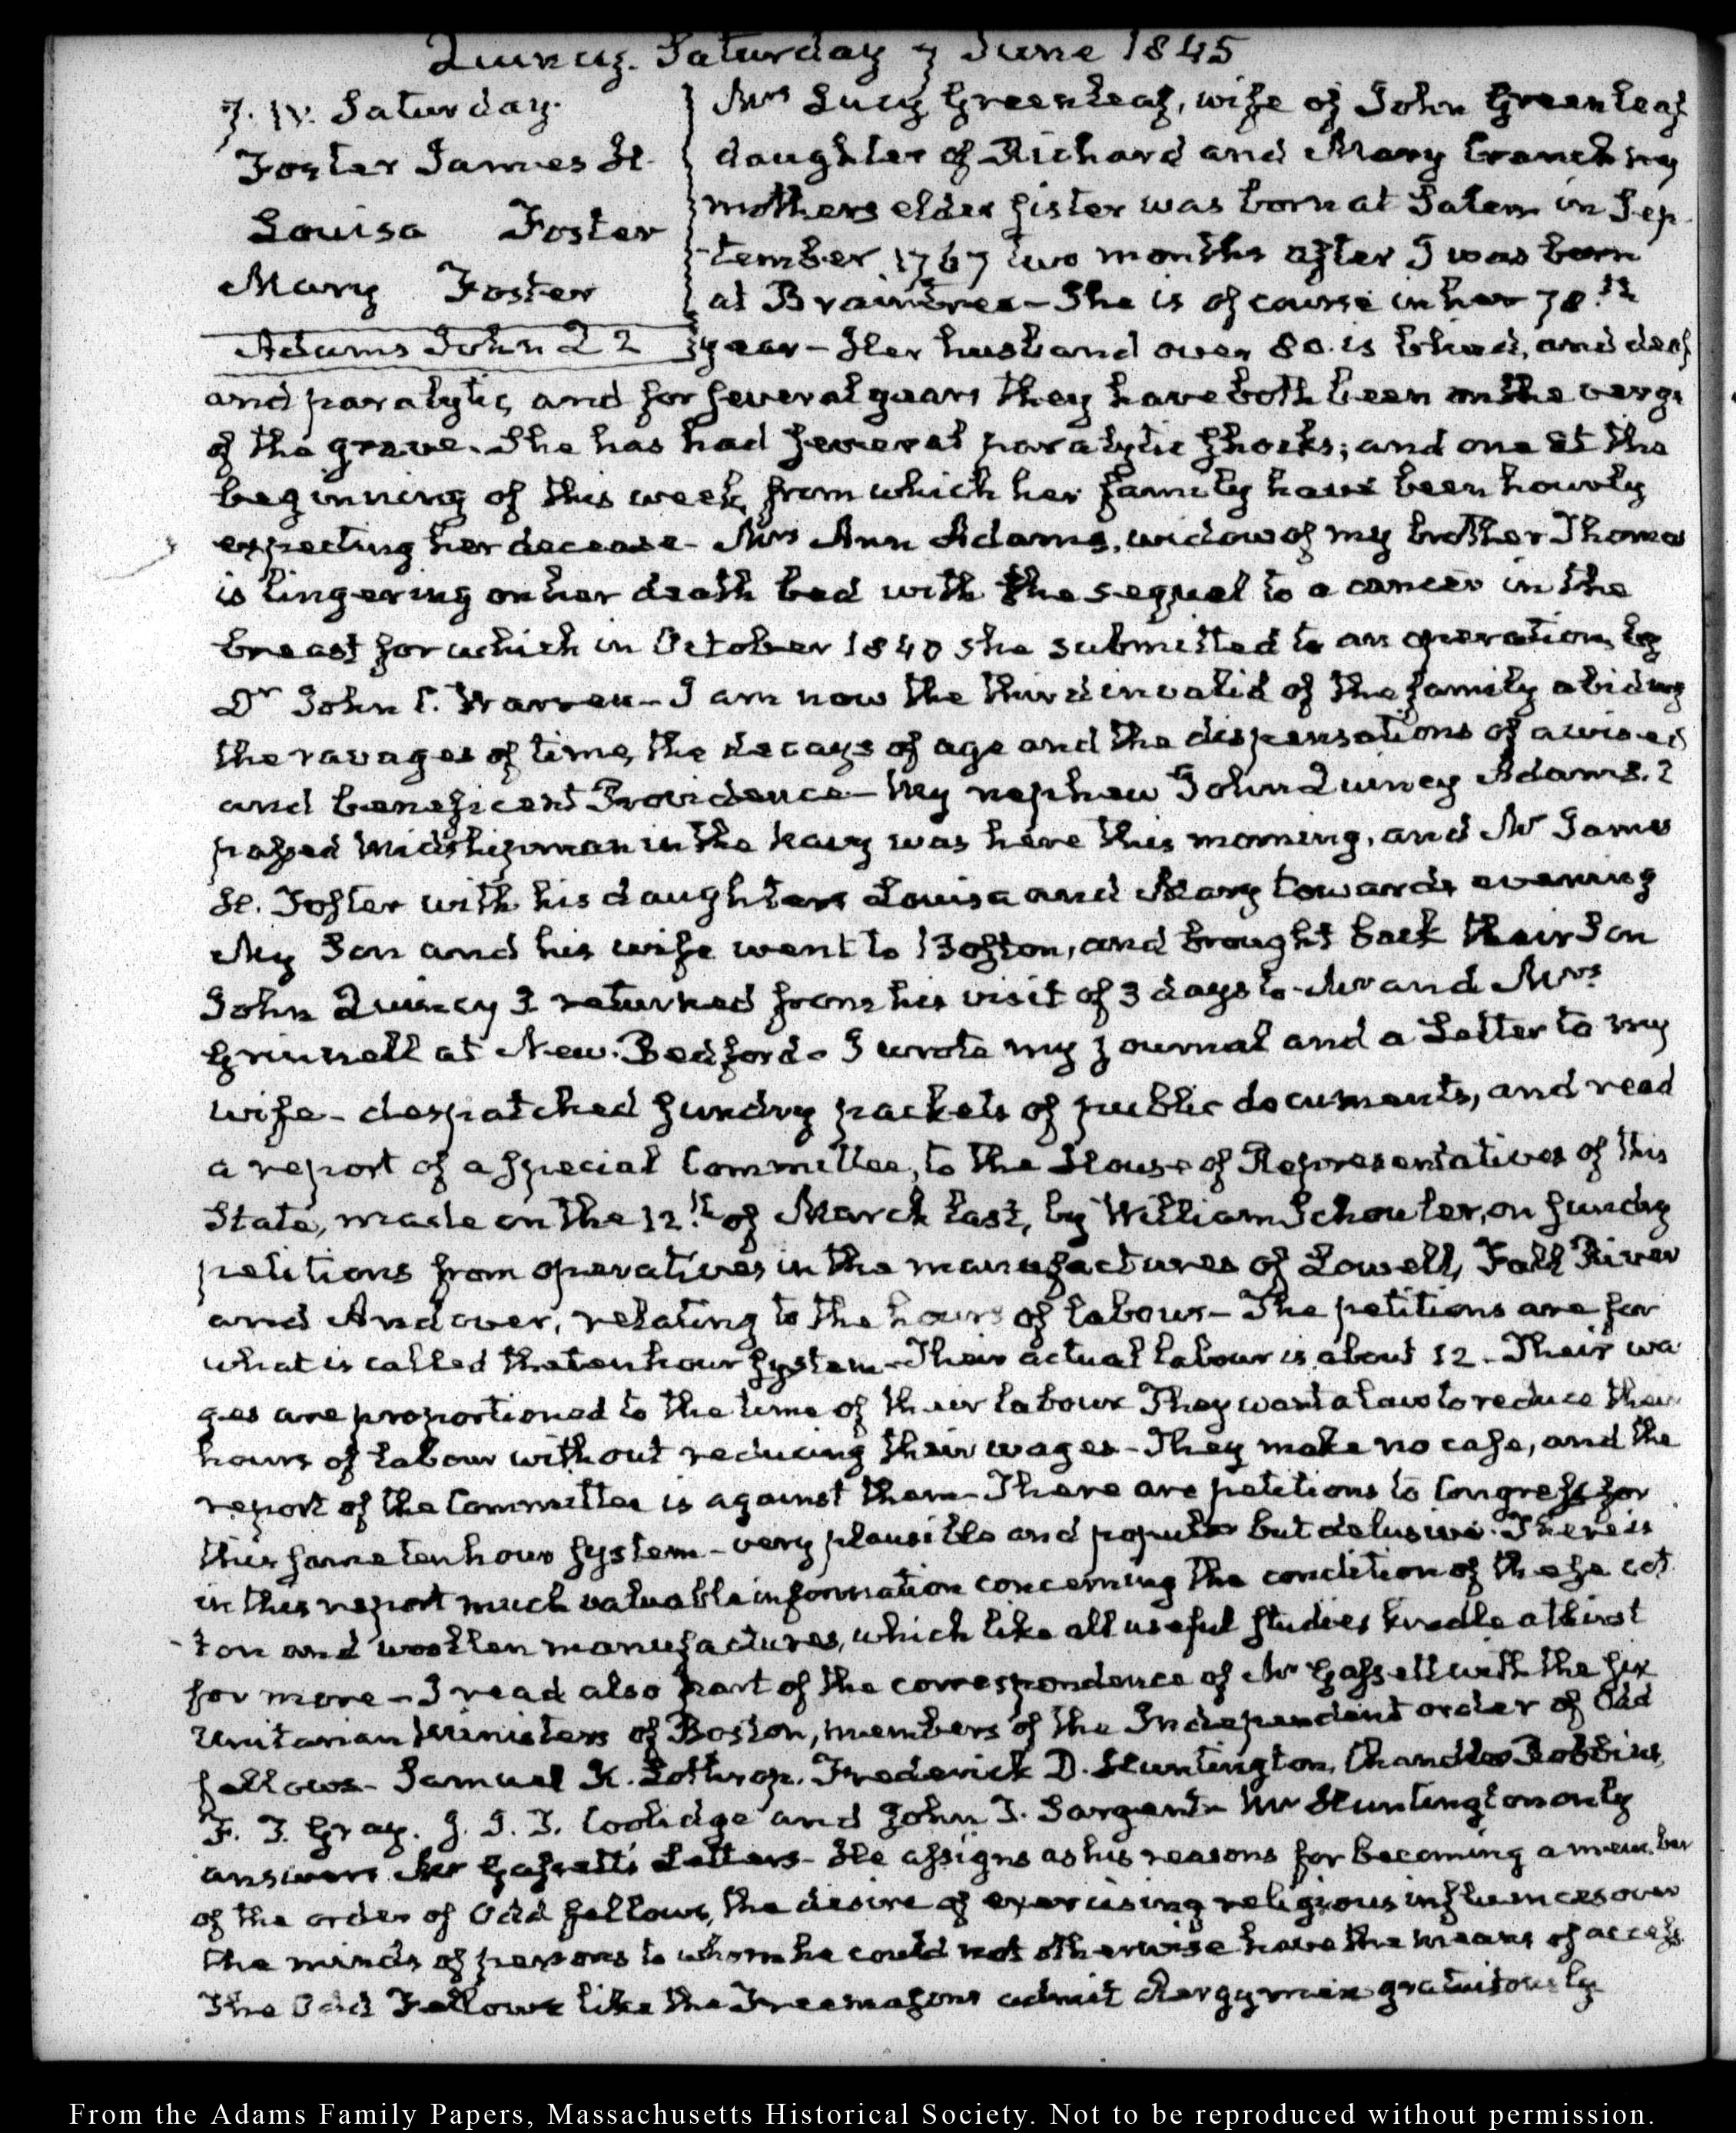 Quincy. Saturday 7 June 1845
7. IV. Saturday.
Foster James H.
Louisa Foster
Mary Foster
Adams John Q 2
Mrs Lucy Greenleaf, wife of John Greenleaf
daughter of Richard and Mary Cranch my
mothers elder sister was born at Salem in Sep-
-tember 1767 two months after I was born
at Braintree - She is of course in her 78.th
year - Her husband over 80. is blind, and deaf
and paralytic, and for several years they have both been on the verge
of the grave. She has had several paralytic shocks; and one at the
beginning of this week, from which her family have been hourly
expecting her decease - Mrs Ann Adams, widow of my brother Thomas
is lingering on her death bed with the sequel to a cancer in the
breast for which in October 1840 she submitted to an operation, by
Dr John C. Warren - I am now the third invalid of the family abiding
the ravages of time, the decays of age and the dispensations of a wise
and beneficent Providence - My nephew John Quincy Adams. 2
passed Midshipman in the Navy was here this morning, and Mr James
H. Foster with his daughters Louisa and Mary towards evening
My Son and his wife went to Boston, and brought back their Son
John Quincy 3 returned from his visit of 3 days to Mr and Mrs
Grinnell at New-Bedford - I wrote my journal and a Letter to my
wife - despatched sundry packets of public documents, and read
a report of a special Committee, to the House of Representatives of this
State, made on the 12.th of March last, by William Schouler, on sundry
petitions from operatives in the manufactures of Lowell, Fall River
and Andover, relating to the hours of labour - The petitions are for
what is called the ten hour system - Their actual labour is about 12 - Their wa
ges are proportioned to the time of their labour They want a law to reduce their
hours of labour without reducing their wages - They make no case, and the
report of the Committee is against them - There are petitions to Congress for
this same ten hour system - very plausible and popular but delusive. There is
in this report much valuable information concerning the condition of these cot
-ton and woollen manufactures, which like all useful studies kindle a thirst
for more - I read also part of the correspondence of Mr Gassett with the six
Unitarian Ministers of Boston, members of the Independent order of Odd
fellows - Samuel K. Lothrop. Frederick D. Huntington, Chandler Robbins,
F. T. Gray. J. I. T. Coolidge and John T. Sargent - Mr Huntington only
answers Mr Gassett's Letters - He assigns as his reasons for becoming a member
of the order of Odd fellows, the desire of exercising religious influences over
the minds of persons to whom he could not otherwise have the means of access
The Odd Fellows like the Freemasons admit Clergymen gratuitously
From the Adams Family Papers, Massachusetts Historical Society. Not to be reproduced without permission.